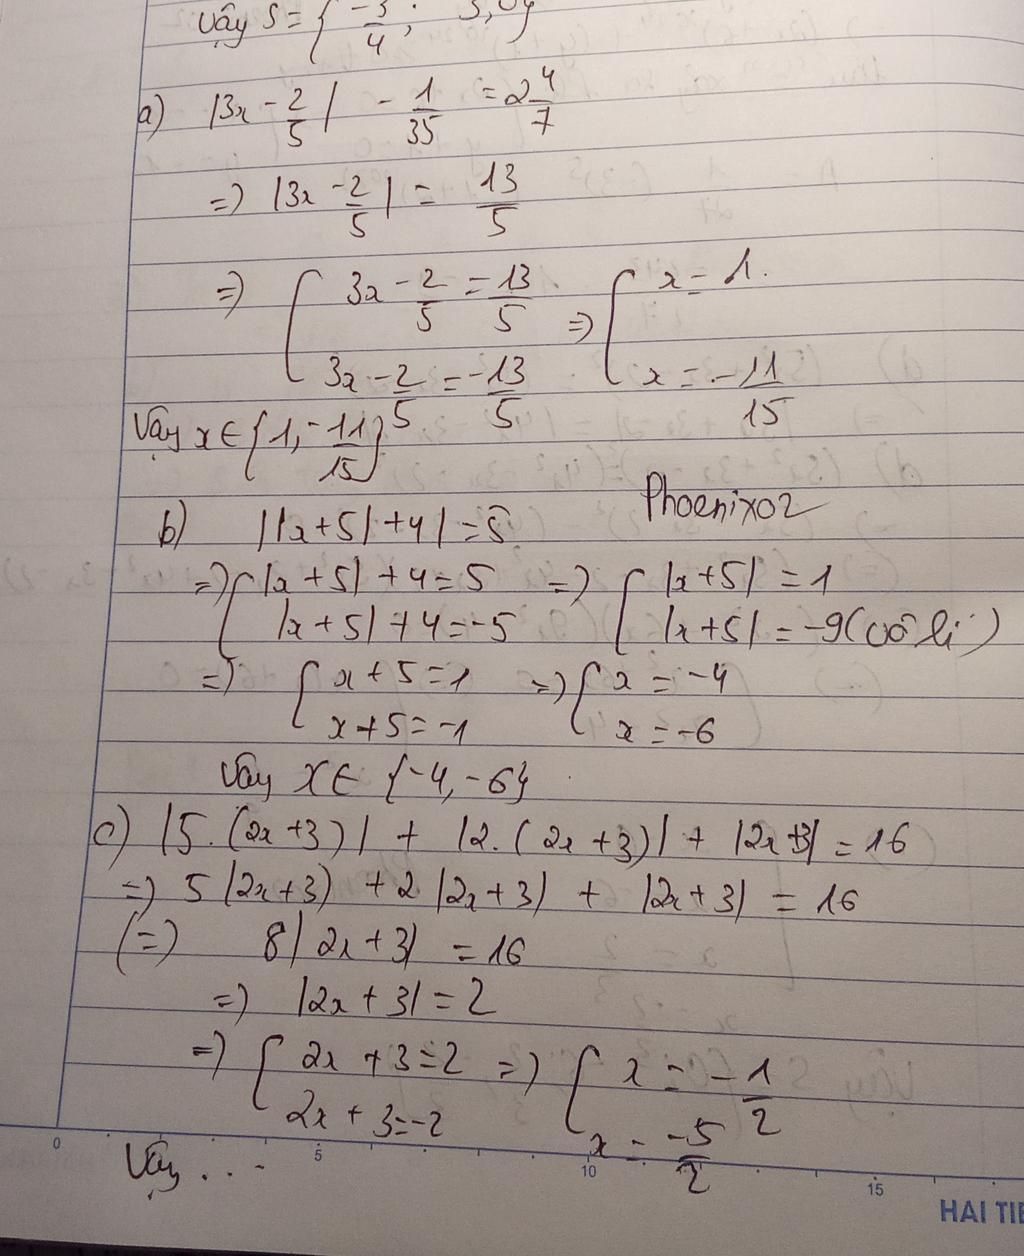 Vậy S = { -3/4 ;
a) |3x - 2/5| - 1/35 = 2 4/7
=) |3x - 2/5| = 13/5
=) [ 3x - 2/5 = 13/5 =) [ x = 1.
3x - 2/5 = -13/5 x = -11/15
Vậy x ∈ {1, -11/15}
Phoenix02
b) ||x+5|+4| = 5
=) [ |x+5| + 4 = 5 =) [ |x+5| = 1
|x+5| + 4 = -5 |x+5| = -9 (vô lí)
=) [ x + 5 = 1 =) [ x = -4
x + 5 = -1 x = -6
Vậy x ∈ {-4, -6}
c) |5.(2x+3)| + |2.(2x+3)| + |2x+3| = 16
=) 5|2x+3) + 2|2x+3) + |2x+3| = 16
(=) 8|2x+3| = 16
=) |2x+3| = 2
=) [ 2x + 3 = 2 =) [ x = -1/2
2x + 3 = -2 x = -5/2
Vậy ...
0 5 10 15
HAI TIE